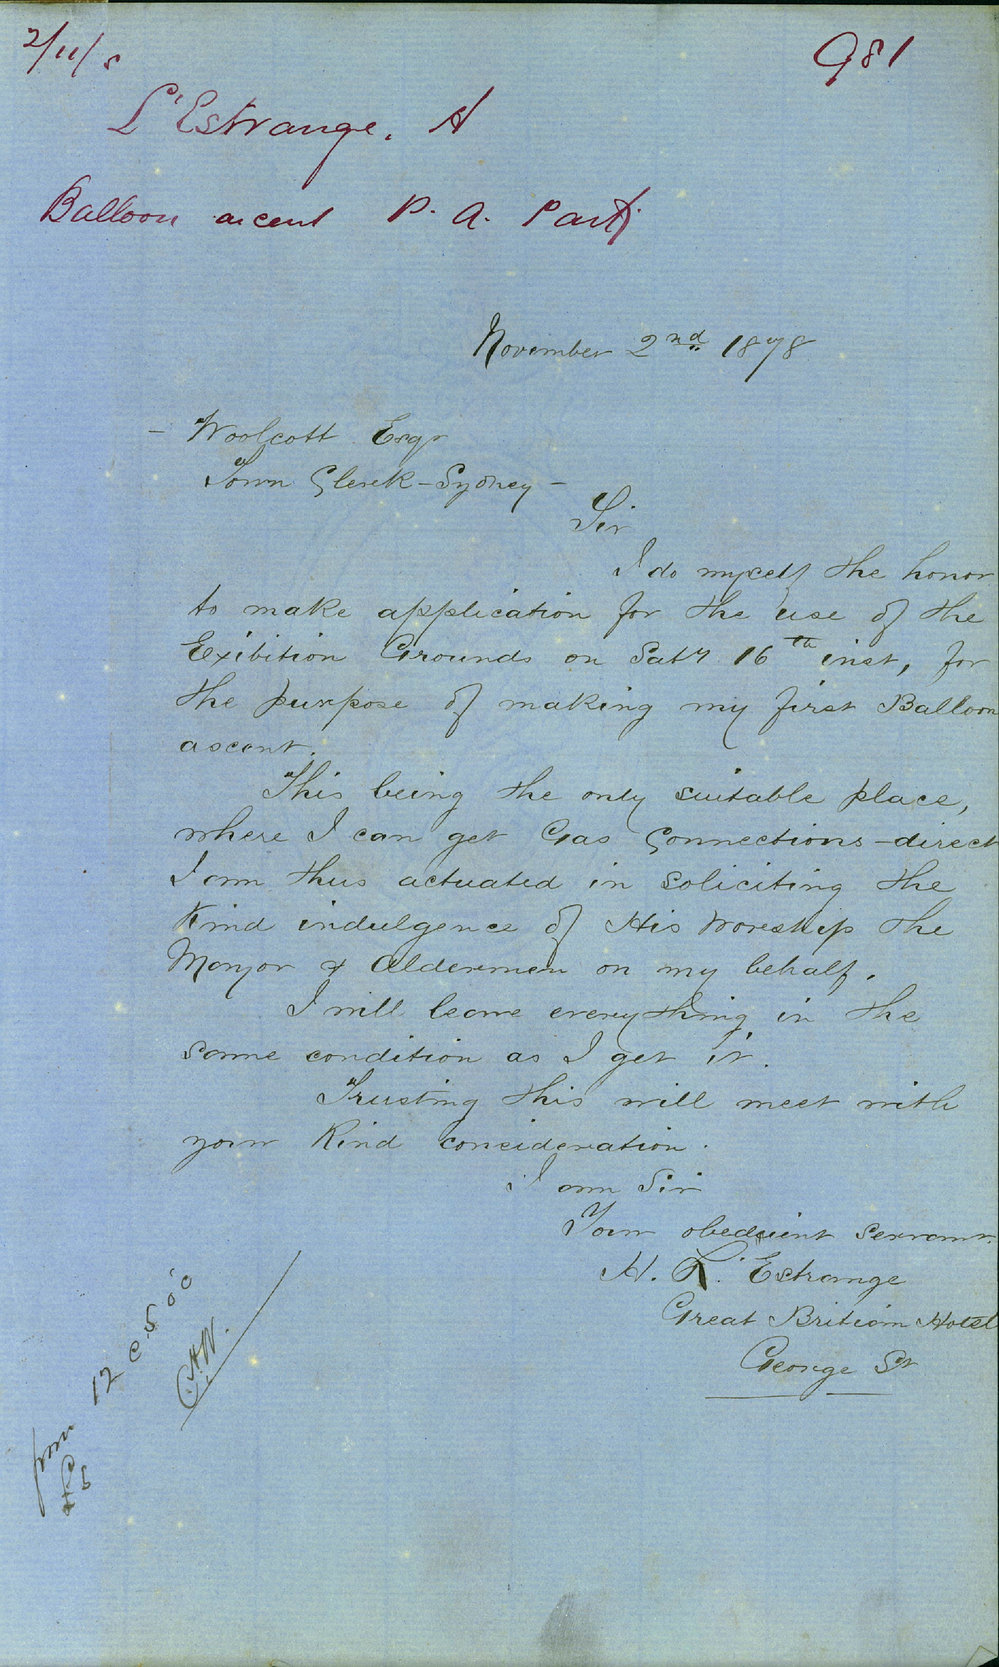 2/11/8
981
L'Estrange. H
Balloon ascent P. A. Park
November 2nd 1878
- Woolcott Esqr
Town Clerk - Sydney -
Sir
I do myself the honor
to make application for the use of the
Exibition Grounds on Saty 16th inst, for
the purpose of making my first Balloon
ascent.
This being the only suitable place,
where I can get Gas Connections - direct
I am thus actuated in soliciting the
Kind indulgence of His Woreship the
Mayor & Aldermen on my behalf.
I will leave everything in the
same condition as I get it.
Trusting this will meet with
your Kind concideration.
I am Sir
Your obedient servant.
H. L'Estrange
Great Britiain Hotel
George St
from 12
C.H.W.
£5